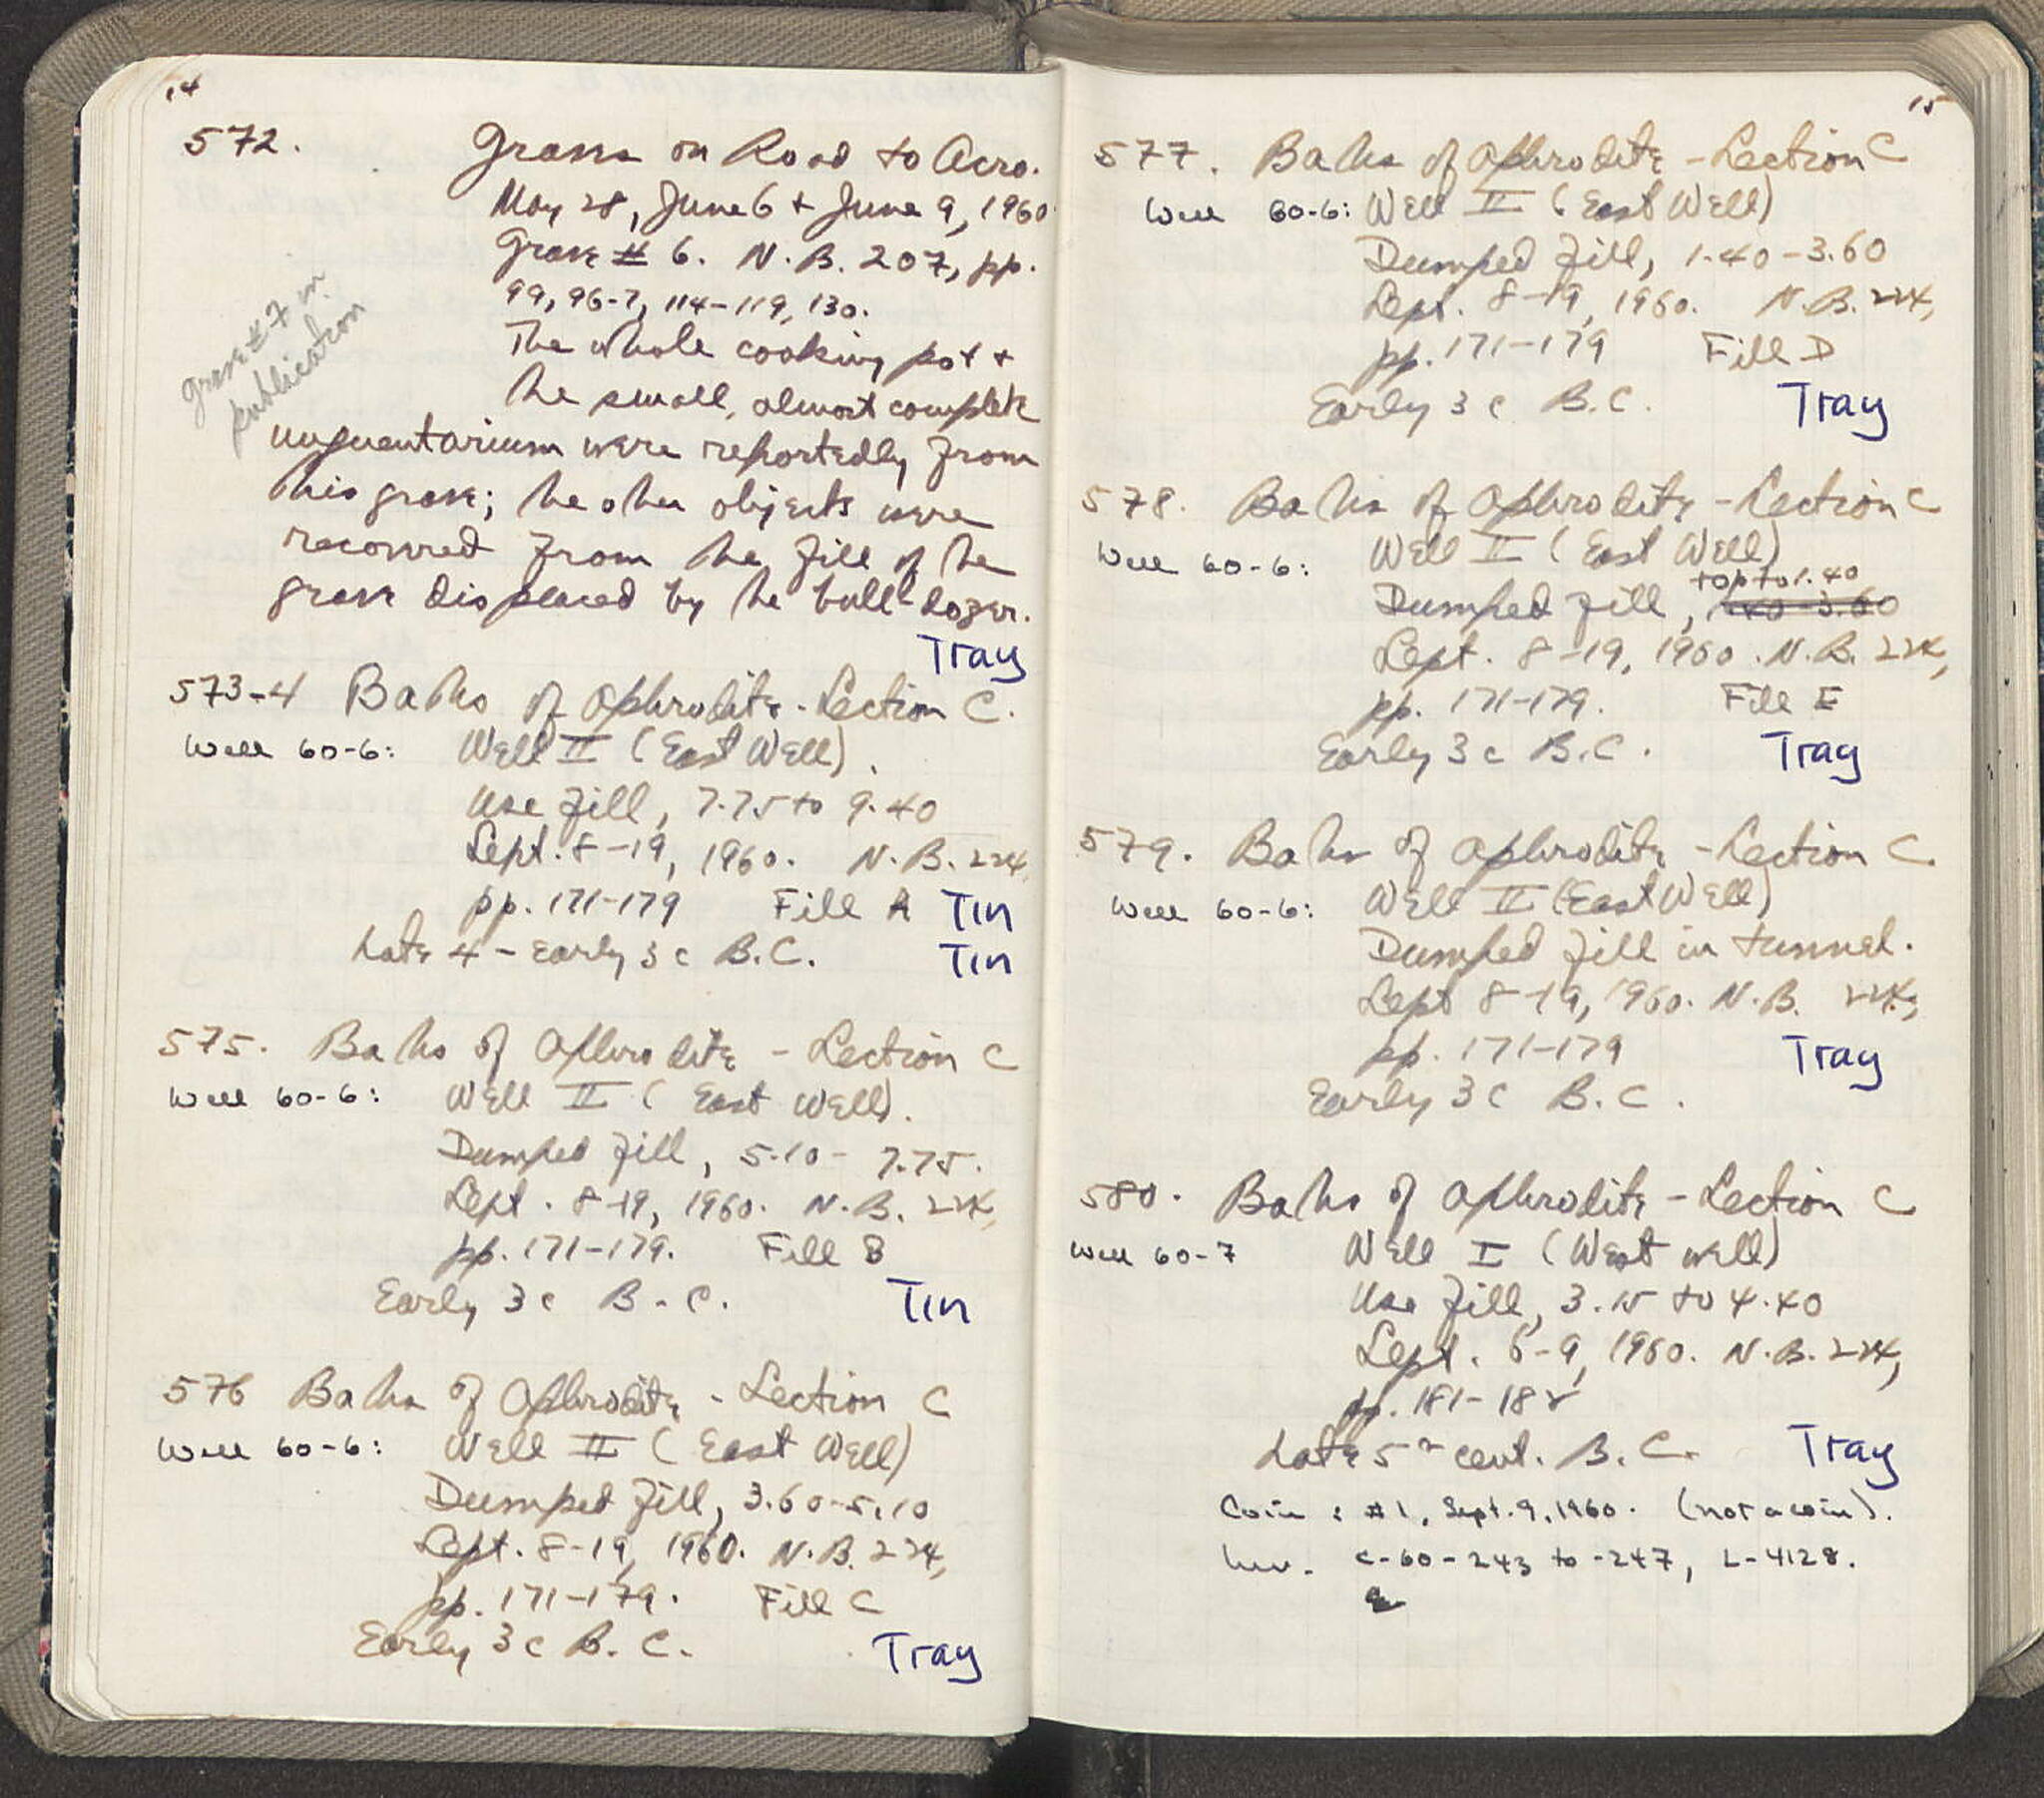 14
572. Graves on Road to Acro.
May 28, June 6 + June 9, 1960
Grave # 6. N.B. 207, pp.
99, 96-7, 114-119, 130.
Grave #7 in
publication
The whole cooking pot +
the small, almost complete
unguentarium were reportedly from
this grave; the other objects were
recovered from the fill of the
grave displaced by the bull-dozer.
Tray
573-4 Baths of Aphrodite - Section C.
Well 60-6: Well II (East Well).
Use fill, 7.75 to 9.40
Sept. 8-19, 1960. N.B. 224,
pp. 171-179 Fill A Tin
Late 4 - Early 3 c B.C. Tin
575. Baths of Aphrodite - Section C
Well 60-6: Well II (East Well).
Dumped fill, 5.10 - 7.75.
Sept. 8-19, 1960. N.B. 224,
pp. 171-179. Fill B
Early 3 c B.C. Tin
576 Baths of Aphrodite - Section C
Well 60-6: Well II (East Well)
Dumped fill, 3.60-5.10
Sept. 8-19, 1960. N.B. 224,
pp. 171-179. Fill C
Early 3 c B.C. Tray
15
577. Baths of Aphrodite - Section C
Well 60-6: Well II (East Well)
Dumped fill, 1.40-3.60
Sept. 8-19, 1960. N.B. 224,
pp. 171-179 Fill D
Early 3 c B.C. Tray
578. Baths of Aphrodite - Section C
Well 60-6: Well II (East Well)
top to 1.40
Dumped fill, 1.40-3.60
Sept. 8-19, 1960. N.B. 224,
pp. 171-179. Fill E
Early 3 c B.C. Tray
579. Baths of Aphrodite - Section C.
Well 60-6: Well II (East Well)
Dumped fill in tunnel.
Sept 8-19, 1960. N.B. 224,
pp. 171-179 Tray
Early 3 c B.C.
580. Baths of Aphrodite - Section C
Well 60-7 Well I (West well)
Use fill, 3.15 to 4.40
Sept. 6-9, 1960. N.B. 224,
pp. 181-182
Late 5th cent. B.C. Tray
Coin: #1, Sept. 9, 1960. (not a coin).
Inv. C-60-243 to -247, L-4128.